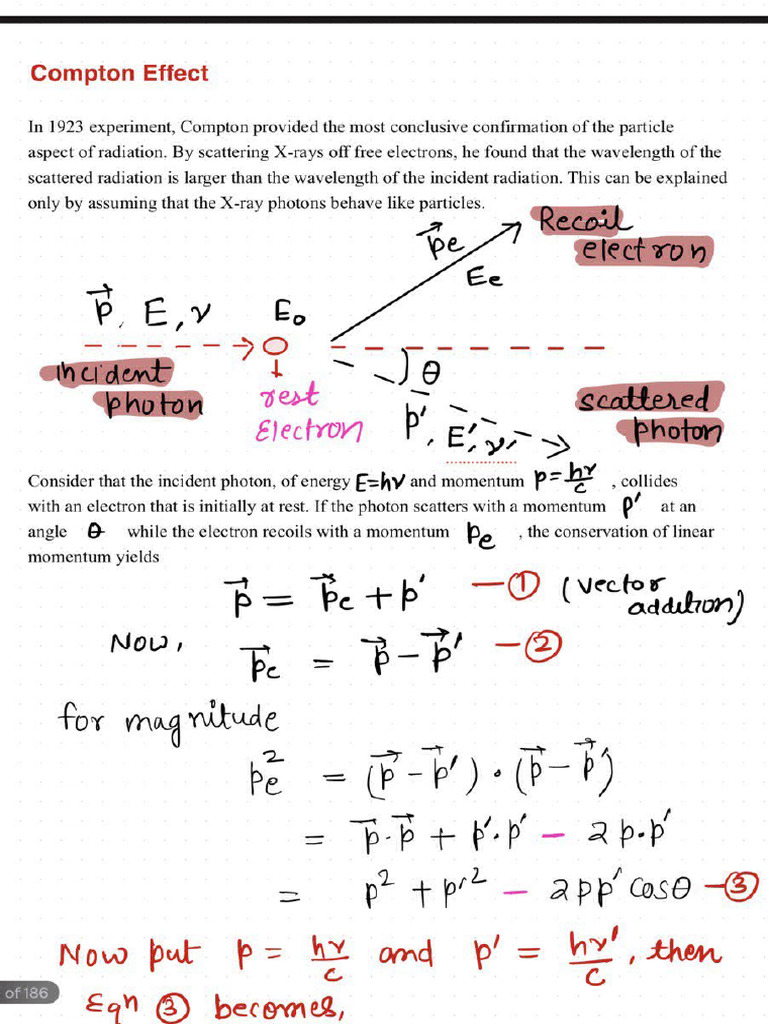 Compton Effect
In 1923 experiment, Compton provided the most conclusive confirmation of the particle
aspect of radiation. By scattering X-rays off free electrons, he found that the wavelength of the
scattered radiation is larger than the wavelength of the incident radiation. This can be explained
only by assuming that the X-ray photons behave like particles.
p⃗e
Recoil
electron
Ee
p⃗, E, ν
E₀
incident
photon
rest
Electron
θ
p′, E′, ν′
scattered
photon
Consider that the incident photon, of energy E=hν and momentum p=hν/c , collides
with an electron that is initially at rest. If the photon scatters with a momentum p′ at an
angle θ while the electron recoils with a momentum pe , the conservation of linear
momentum yields
p⃗ = p⃗e + p′ — ① (vector
addition)
Now, p⃗e = p⃗ − p⃗′ — ②
for magnitude
pe² = (p⃗ − p⃗′) · (p⃗ − p⃗′)
= p⃗·p⃗ + p′·p′ − 2p·p′
= p² + p′² − 2pp′ cosθ — ③
Now put p = hν/c and p′ = hν′/c, then
Eqn ③ becomes,
of 186